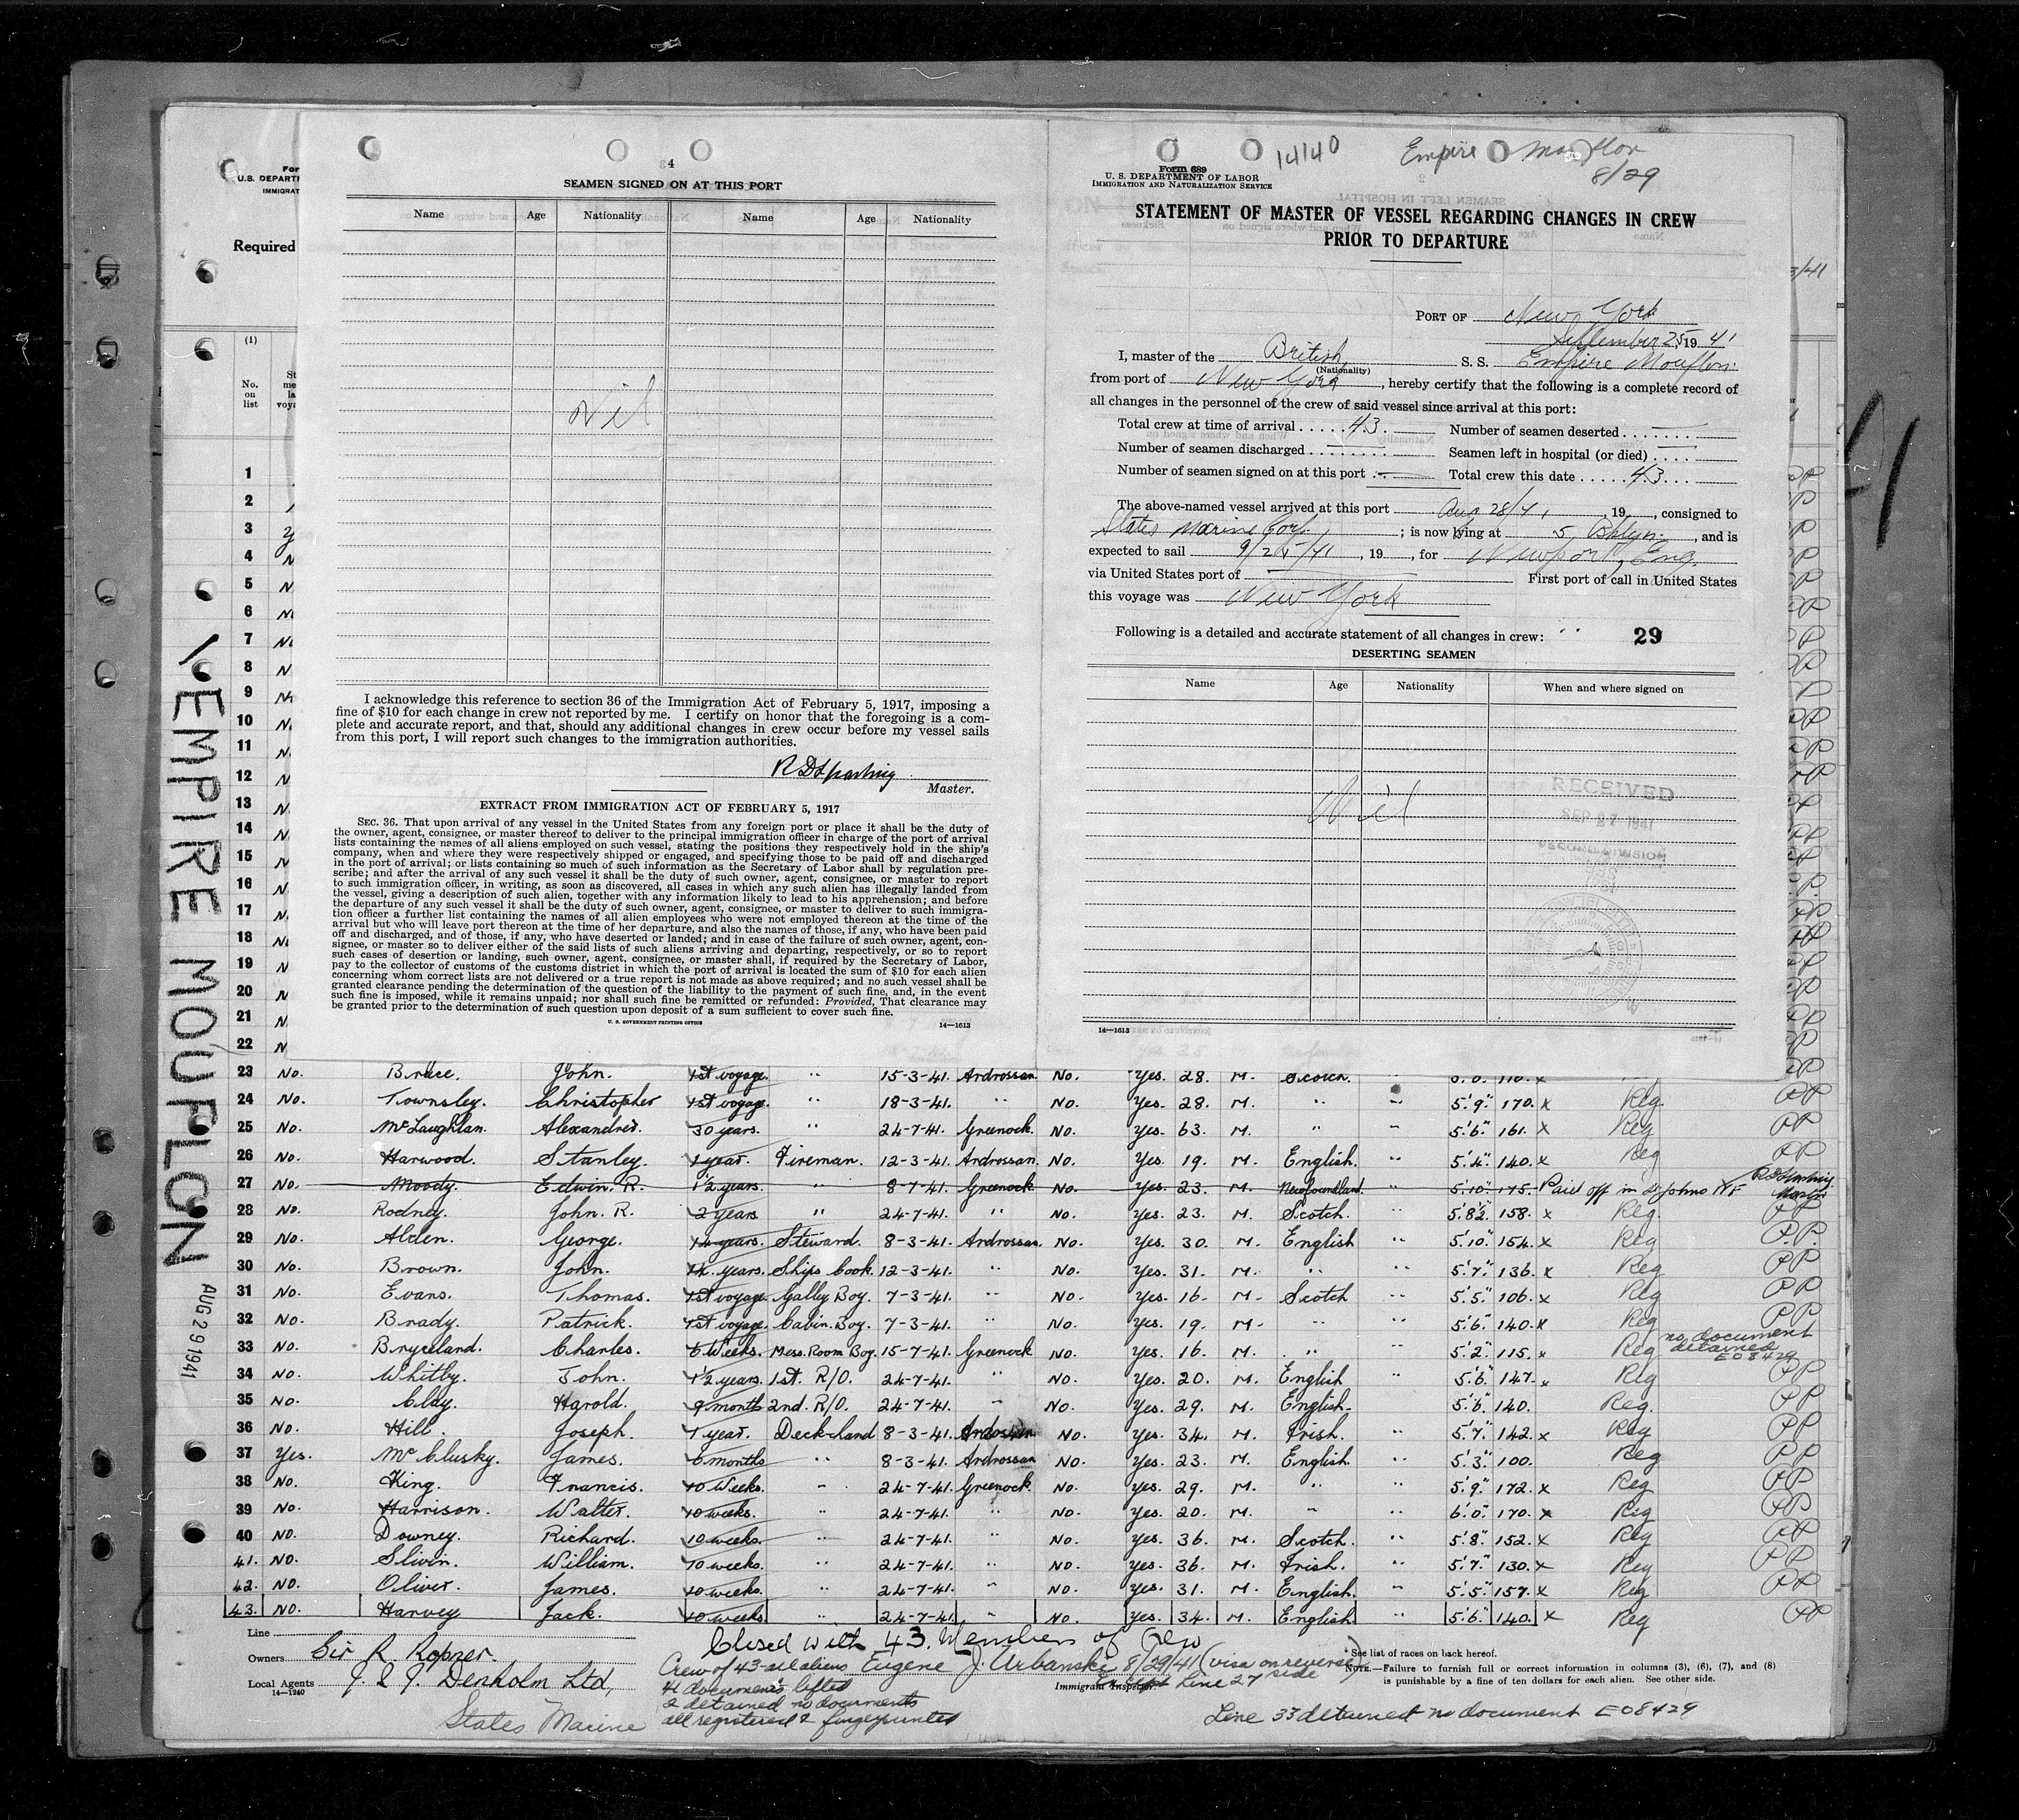 14140
Empire
8/29
4
SEAMEN SIGNED ON AT THIS PORT
Name Age Nationality Name Age Nationality
Nil
I acknowledge this reference to section 36 of the Immigration Act of February 5, 1917, imposing a
fine of $10 for each change in crew not reported by me. I certify on honor that the foregoing is a com-
plete and accurate report, and that, should any additional changes in crew occur before my vessel sails
from this port, I will report such changes to the immigration authorities.
Master.
EXTRACT FROM IMMIGRATION ACT OF FEBRUARY 5, 1917
SEC. 36. That upon arrival of any vessel in the United States from any foreign port or place it shall be the duty of
the owner, agent, consignee, or master thereof to deliver to the principal immigration officer in charge of the port of arrival
lists containing the names of all aliens employed on such vessel, stating the positions they respectively hold in the ship's
company, when and where they were respectively shipped or engaged, and specifying those to be paid off and discharged
in the port of arrival; or lists containing so much of such information as the Secretary of Labor shall by regulation pre-
scribe; and after the arrival of any such vessel it shall be the duty of such owner, agent, consignee, or master to report
to such immigration officer, in writing, as soon as discovered, all cases in which any such alien has illegally landed from
the vessel, giving a description of such alien, together with any information likely to lead to his apprehension; and before
the departure of any such vessel it shall be the duty of such owner, agent, consignee, or master to deliver to such immigra-
tion officer a further list containing the names of all alien employees who were not employed thereon at the time of the
arrival but who will leave port thereon at the time of her departure, and also the names of those, if any, who have been paid
off and discharged, and of those, if any, who have deserted or landed; and in case of the failure of such owner, agent, con-
signee, or master so to deliver either of the said lists of such aliens arriving and departing, respectively, or so to report
such cases of desertion or landing, such owner, agent, consignee, or master shall, if required by the Secretary of Labor,
pay to the collector of customs of the customs district in which the port of arrival is located the sum of $10 for each alien
concerning whom correct lists are not delivered or a true report is not made as above required; and no such vessel shall be
granted clearance pending the determination of the question of the liability to the payment of such fine, and, in the event
such fine is imposed, while it remains unpaid; nor shall such fine be remitted or refunded: Provided, That clearance may
be granted prior to the determination of such question upon deposit of a sum sufficient to cover such fine.
U. S. GOVERNMENT PRINTING OFFICE 14—1613
Form 689
U. S. DEPARTMENT OF LABOR
IMMIGRATION AND NATURALIZATION SERVICE
STATEMENT OF MASTER OF VESSEL REGARDING CHANGES IN CREW
PRIOR TO DEPARTURE
PORT OF New York
September 25, 19 41
I, master of the British S. S. Empire Mouflon.
(Nationality)
from port of New York, hereby certify that the following is a complete record of
all changes in the personnel of the crew of said vessel since arrival at this port:
Total crew at time of arrival 43 Number of seamen deserted
Number of seamen discharged Seamen left in hospital (or died)
Number of seamen signed on at this port Total crew this date 43
The above-named vessel arrived at this port Aug 28/41, 19 , consigned to
States Marine Corp. ; is now lying at 5, Bklyn. , and is
expected to sail 9/25/41, 19 , for Newport, Eng.
via United States port of First port of call in United States
this voyage was New York
Following is a detailed and accurate statement of all changes in crew: 29
DESERTING SEAMEN
Name Age Nationality When and where signed on
Nil
RECEIVED
SEP 27 1941
RECORD DIVISION
14—1613
U. S. DEPART
IMMIGRAT
Required
(1)
No. on list
1
2
3
4
5
6
7
8
9
10
11
12
13
14
15
16
17
18
19
20
21
22
23 No. Bruce. John. 1st voyage. " 15-3-41. Ardrossan. No. Yes. 28. M. Scotch. "
24 No. Townsley. Christopher 1st voyage. " 18-3-41. " No. Yes. 28. M. " " 5'.9". 170. x Reg PP
25 No. McLaughlan. Alexander. 30 years. " 24-7-41. Greenock. No. Yes. 63. M. " " 5'.6". 161. x Reg PP
26 No. Harwood. Stanley. 1 year. Fireman. 12-3-41. Ardrossan. No. Yes. 19. M. English. " 5'.4". 140. x Reg PP
27 No. Moody. Edwin. R. 1½ years. " 8-7-41. Greenock. No. Yes. 23. M. Newfoundland. " 5'.10". 175. Paid off in St Johns NF
28 No. Rodney. John. R. 2 years " 24-7-41. " No. Yes. 23. M. Scotch. " 5'.8½". 158. x Reg. PP
29 No. Alden. George. 14 years. Steward. 8-3-41. Ardrossan. No. Yes. 30. M. English " 5'.10". 154. x Reg P.P.
30 No. Brown. John. 14. years. Ships Cook. 12-3-41. " No. Yes. 31. M. " " 5'.7". 136. x Reg PP
31 No. Evans. Thomas. 1st voyage. Galley Boy. 7-3-41. " No. Yes. 16. M. Scotch " 5'.5". 106. x Reg PP
32 No. Brady. Patrick. 1st voyage. Cabin. Boy. 7-3-41. " No. Yes. 19. M. " " 5'.6". 140. x Reg PP
33 No. Bryceland. Charles. 6 Weeks. Mess. Room Boy. 15-7-41. Greenock No. Yes. 16. M. " " 5'.2". 115. x Reg no document detained E08429
34 No. Whitby. John. 1½ years. 1st. R/O. 24-7-41. " No. Yes. 20. M. English " 5'.6". 147. x Reg PP
35 No. Clay. Harold. 9 months 2nd. R/O. 24-7-41. " No. Yes. 29. M. English. " 5'.6". 140. Reg. PP
36 No. Hill. Joseph. 1 year. Deck-hand 8-3-41. Ardrossan No. Yes. 34. M. Irish. " 5'.7". 142. x Reg PP
37 Yes. McClusky. James. 6 months " 8-3-41. Ardrossan No. Yes. 23. M. English " 5'.3". 100. Reg PP
38 No. King. Francis. 10 Weeks. " 24-7-41. Greenock. No. Yes. 29. M. " " 5'.9". 172. x Reg PP
39 No. Harrison. Walter. 10 weeks. " 24-7-41. " No. Yes. 20. M. " " 6'.0". 170. x Reg PP
40 No. Downey. Richard. 10 weeks. " 24-7-41. " No. Yes. 36. M. Scotch. " 5'.8". 152. x Reg PP
41. No. Slivin. William. 10 weeks. " 24-7-41. " No. Yes. 36. M. Irish. " 5'.7". 130. x Reg PP
42. No. Oliver. James. 10 weeks. " 24-7-41. " No. Yes. 31. M. English. " 5'.5". 157. x Reg PP
43. No. Harvey Jack. 10 weeks " 24-7-41. " No. Yes. 34. M. English " 5'.6". 140. x Reg PP
Line
Owners Sir R. Ropner.
Local Agents J. & J. Denholm Ltd,
14—1240
States Marine
Closed with 43. Members of Crew
Crew of 43 all aliens Eugene J. Urbanski 8/29/41 (visa on reverse side)
41 documents lifted
2 detained no documents
all registered & fingerprinted
Immigrant Inspector.
Line 27
* See list of races on back hereof.
NOTE.—Failure to furnish full or correct information in columns (3), (6), (7), and (8)
is punishable by a fine of ten dollars for each alien. See other side.
Line 33 detained no document E08429
EMPIRE MOUFLON
AUG 29 1941